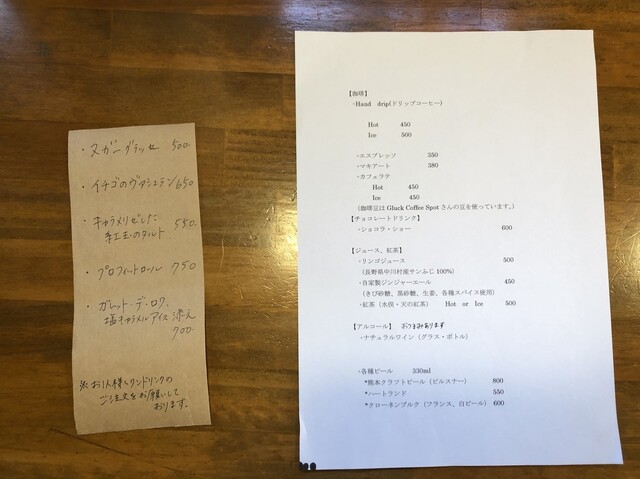 ・ヌガーグラッセ 500
・イチゴのヴァシュラン 650
・キャラメリゼした
紅玉のタルト 550
・プロフィットロール 750
・ガレット・デ・ロワ
塩キャラメルアイス 添え
900
※お1人様1ワンドリンクの
ご注文をお願いして
おります。
【珈琲】
・Hand drip(ドリップコーヒー)
Hot 450
Ice 500
・エスプレッソ 350
・マキアート 380
・カフェラテ
Hot 450
Ice 450
(珈琲豆は Gluck Coffee Spot さんの豆を使っています。)
【チョコレートドリンク】
・ショコラ・ショー 600
【ジュース、紅茶】
・リンゴジュース 500
(長野県中川村産サンふじ 100%)
・自家製ジンジャーエール 450
(きび砂糖、黒砂糖、生姜、各種スパイス使用)
・紅茶(水俣・天の紅茶) Hot or Ice 500
【アルコール】 おつまみあります
・ナチュラルワイン(グラス・ボトル)
・各種ビール 330ml
*熊本クラフトビール(ピルスナー) 800
*ハートランド 550
*クローネンブルク(フランス、白ビール) 600